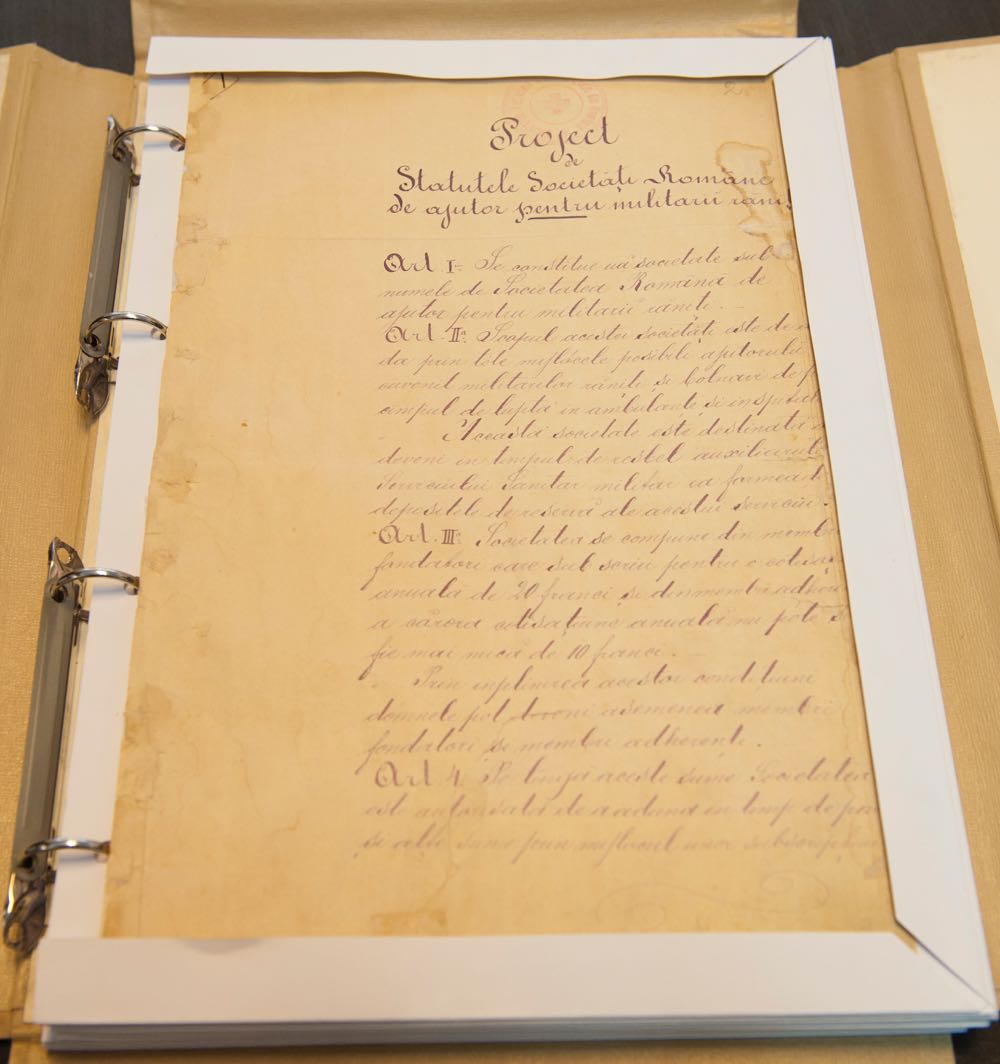 1
2
Project
de
Statutele Societăți Române
de ajutor pentru militarii răni
Art I. Se constitue uă societate sub
numele de Societatea Română de
ajutor pentru militarii răniți. —
Art. IIa Scopul acestei societăți este de a
da prin tote mijlocele posibile ajutorulu
cuvenit militarilor răniți și bolnavi de p
cîmpul de luptă in ambulante si in spitale
Aceastá societate este destinată a
deveni in timpul de resbel auxiliarulu
Serviciului Sanitar militar ca formeadă
depositele de reservă ale acestui serviciu.
Art. III. Societatea se compune din membri
fondatori care sub scriu pentru o cotisa
anuală de 20 franci și din membri adheren
a cărora cotisațiune anuală nu pote s
fie mai mică de 10 franci. —
Prin inplinirea acestor condițiuni
domnele pot deveni asemenea membri
fondatori si membri adherenti.
Art. 4. Pe lingă aceste sume Societatea
este autorisată de a aduna in timp de pa
și alte sume prin mijlocul unor subscripțiuni